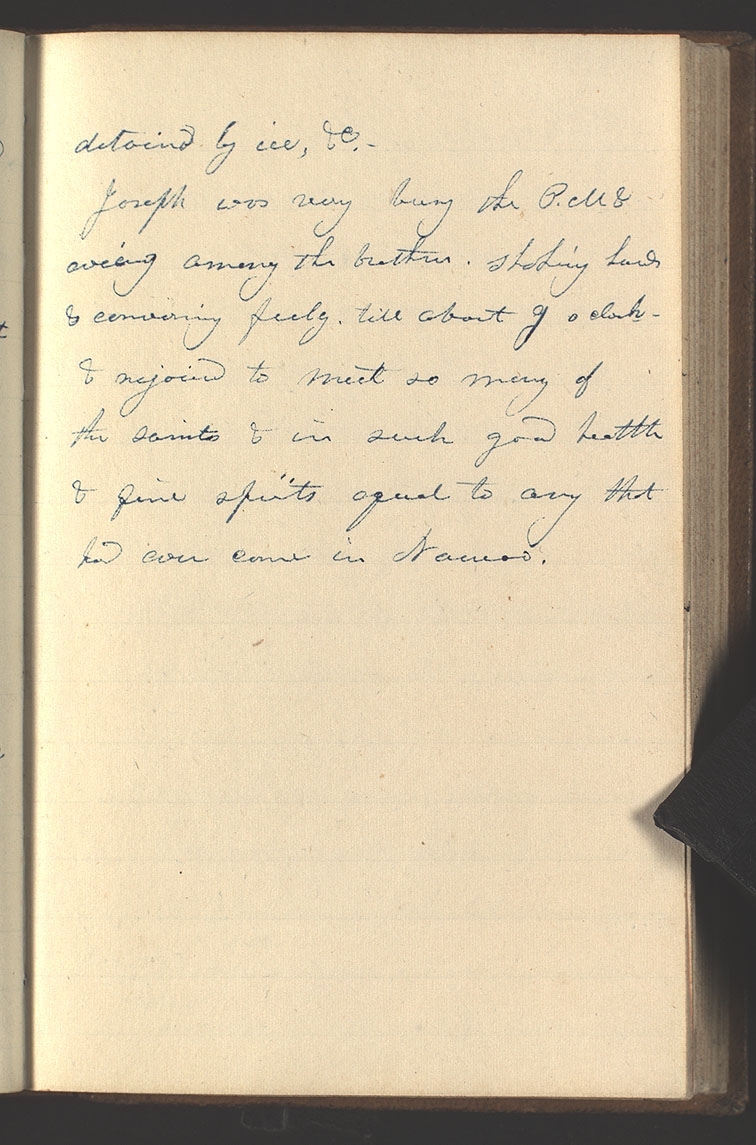 detaind by ice, &c.-
Joseph was very busy the P.M &
eveing among the brethren. shaking hands
& conversing freely. till about 9 o clock-
& rejoiced to meet so many of
the saints & in such good health
& fine spirits equal to any that
had ever come in Nauvoo.